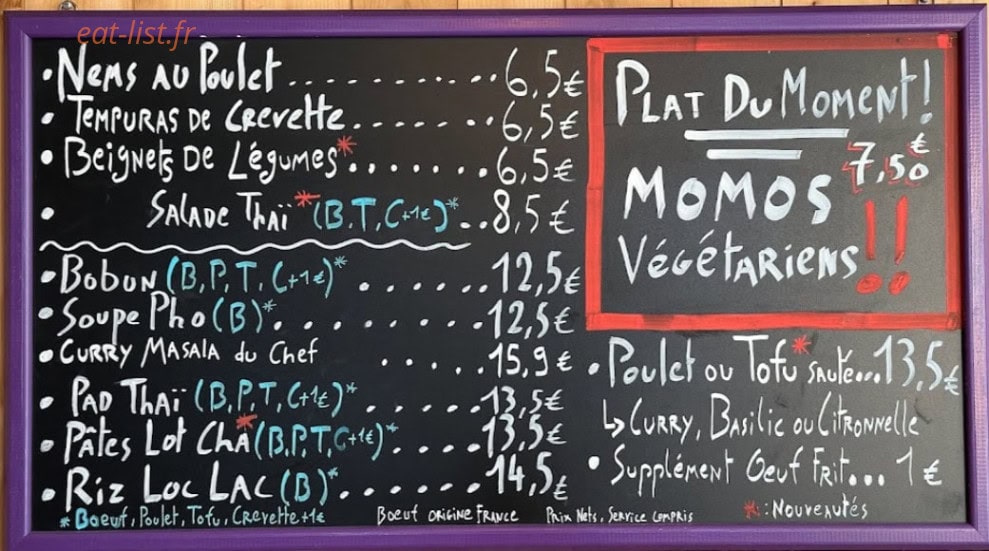 eat-list.fr
• Nems au Poulet ............ 6,5€
• Tempuras de Crevette....... 6,5€
• Beignets de Légumes*....... 6,5€
• Salade Thaï* (B,T,C+1€)*.. 8,5€
• Bobun (B,P,T,C+1€)* ....... 12,5€
• Soupe Pho (B)*.......... 12,5€
• Curry Masala du Chef .... 15,9€
• Pad Thaï (B,P,T,C+1€)* ...... 13,5€
• Pâtes Lot Cha* (B,P,T,C+1€)*..... 13,5€
• Riz Loc Lac (B)*....... 14,5€
* Boeuf, Poulet, Tofu, Crevette +1€
Boeuf origine France
Prix Nets, Service compris
Plat Du Moment!
7,50€
Momos !!
Végétariens
• Poulet ou Tofu* sauté...13,5€
↳ Curry, Basilic ou Citronnelle
• Supplément Oeuf Frit... 1€
*: Nouveautés